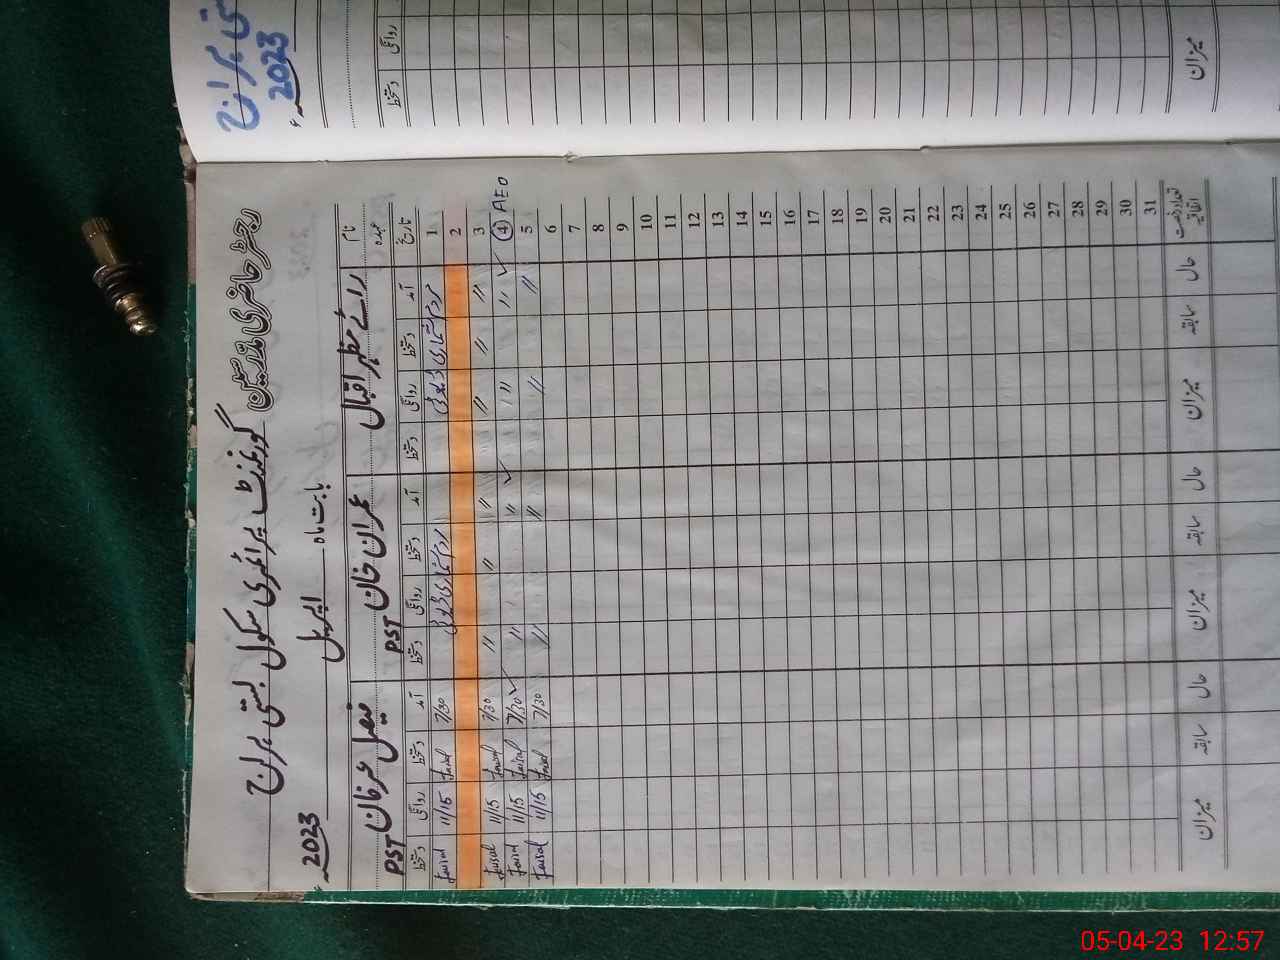 رجسٹر حاضری مدرسین گورنمنٹ پرائمری سکول بستی
بابت ماہ اپریل 2023ء
نام رائے مظہر اقبال عمران خان فیصل عرفان
عہدہ PST PST
تاریخ آمد دستخط روانگی دستخط آمد دستخط روانگی دستخط آمد دستخط روانگی دستخط
1 مردم شماری ڈیوٹی مردم شماری ڈیوٹی 7/30 Faisal 11/15 Faisal
2
3 〃 〃 〃 〃 〃 〃 7/30 Faisal 11/15 Faisal
AEO 4 ✓ 〃 〃 ✓ 〃 〃 ✓ 7/30 Faisal 11/15 Faisal
5 〃 〃 〃 〃 7/30 Faisal 11/15 Faisal
6
7
8
9
10
11
12
13
14
15
16
17
18
19
20
21
22
23
24
25
26
27
28
29
30
31
تعداد رخصت اتفاقیہ حال سابقہ میزان حال سابقہ میزان حال سابقہ میزان
2023ء
روانگی دستخط
میزان
05-04-23 12:57